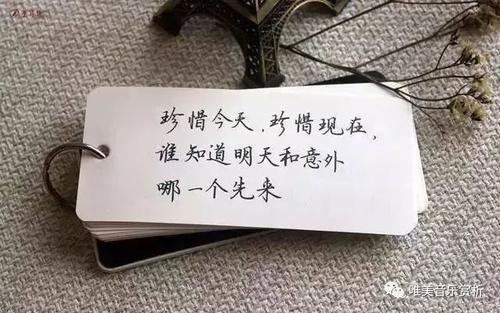 珍惜今天,珍惜现在,
谁知道明天和意外
哪一个先来
唯美音乐赏析